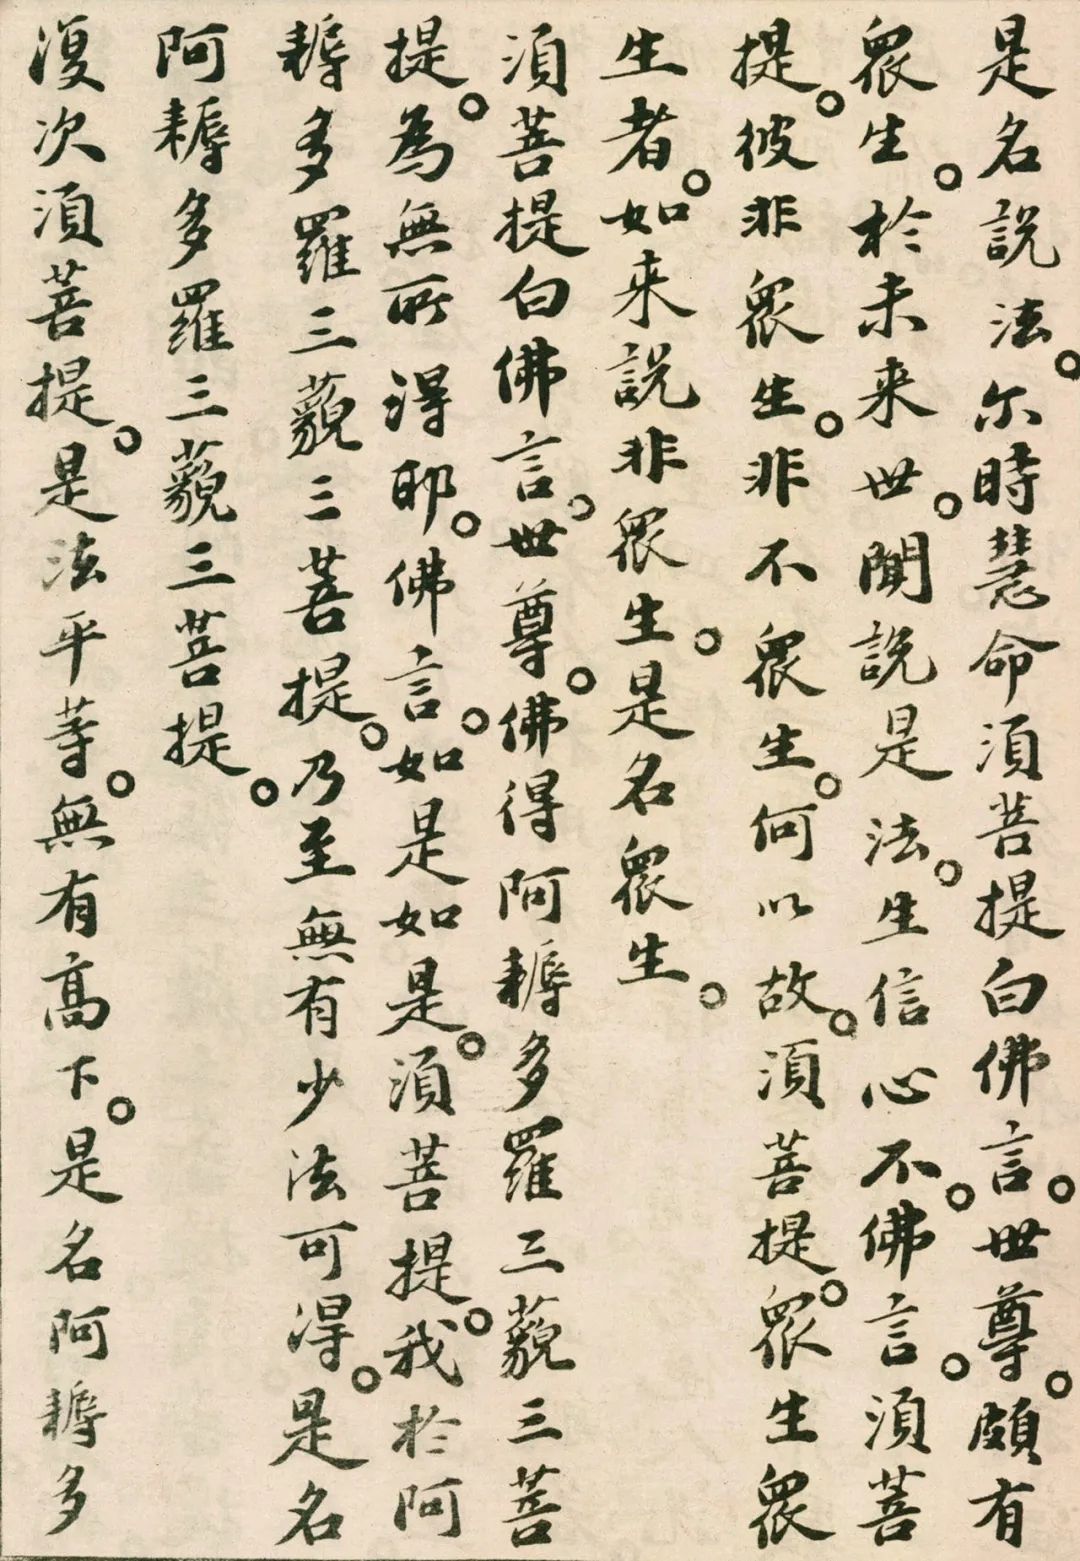 是名說法。尔時慧命須菩提白佛言。世尊。頗有
衆生。於未来世。聞說是法。生信心不。佛言。須菩
提。彼非衆生。非不衆生。何以故。須菩提。衆生衆
生者。如来說非衆生。是名衆生。
須菩提白佛言。世尊。佛得阿耨多羅三藐三菩
提。為無所得耶。佛言。如是如是。須菩提。我於阿
耨多羅三藐三菩提。乃至無有少法可得。是名
阿耨多羅三藐三菩提。
復次須菩提。是法平等。無有高下。是名阿耨多